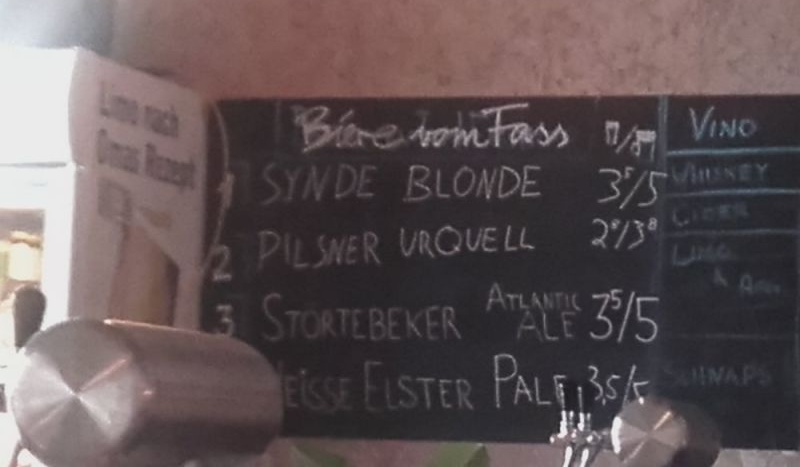 Limo nach
Omas Rezept
Biere vom Fass
1 SYNDE BLONDE 3⁵/5
2 PILSNER URQUELL 2⁸/3⁸
3 STÖRTEBEKER ATLANTIC ALE 3⁵/5
EISSE ELSTER PALE 3,5/5
VINO
WHISKEY
CIDER
LIMO
&
SCHNAPS